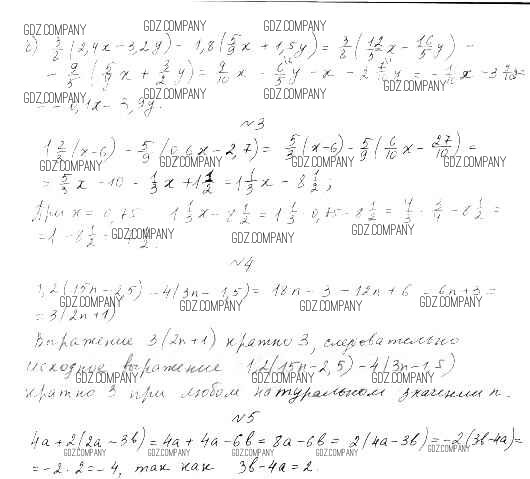 GDZ.COMPANY GDZ.COMPANY GDZ.COMPANY
б) 3/8 (2,4x - 3,2y) - 1,8 (5/9 x + 1,5y) = 3/8 (12/5 x - 16/5 y) -
- 9/5 (5/9 x + 3/2 y) = 9/10 x - 6/5 y - x - 2 7/10 y = - 1/10 x - 3 9/10 y =
GDZ.COMPANY GDZ.COMPANY GDZ.COMPANY
= - 0,1x - 3,9y.
№3
1 2/3 (x-6) - 5/9 (0,6x - 2,7) = 5/3 (x-6) - 5/9 (6/10 x - 27/10) =
GDZ.COMPANY GDZ.COMPANY GDZ.COMPANY GDZ.COMPANY
= 5/3 x - 10 - 1/3 x + 1 1/2 = 1 1/3 x - 8 1/2;
При x = 0,75 1 1/3 x - 8 1/2 = 1 1/3 · 0,75 - 8 1/2 = 4/3 · 3/4 - 8 1/2 =
= 1 - 8 1/2 =
GDZ.COMPANY GDZ.COMPANY GDZ.COMPANY
№4
1,2 (15n - 2,5) - 4 (3n - 1,5) = 18n - 3 - 12n + 6 = 6n + 3 =
GDZ.COMPANY GDZ.COMPANY GDZ.COMPANY GDZ.COMPANY
= 3 (2n+1)
Выражение 3 (2n+1) кратно 3, следовательно
исходное выражение 1,2 (15n - 2,5) - 4 (3n - 1,5)
GDZ.COMPANY GDZ.COMPANY GDZ.COMPANY
кратно 3 при любом натуральном значении n.
№5
4a + 2 (2a - 3b) = 4a + 4a - 6b = 8a - 6b = 2 (4a - 3b) = -2 (3b - 4a) =
GDZ.COMPANY GDZ.COMPANY GDZ.COMPANY GDZ.COMPANY GDZ.COMPANY
= -2 · 2 = -4, так как 3b - 4a = 2